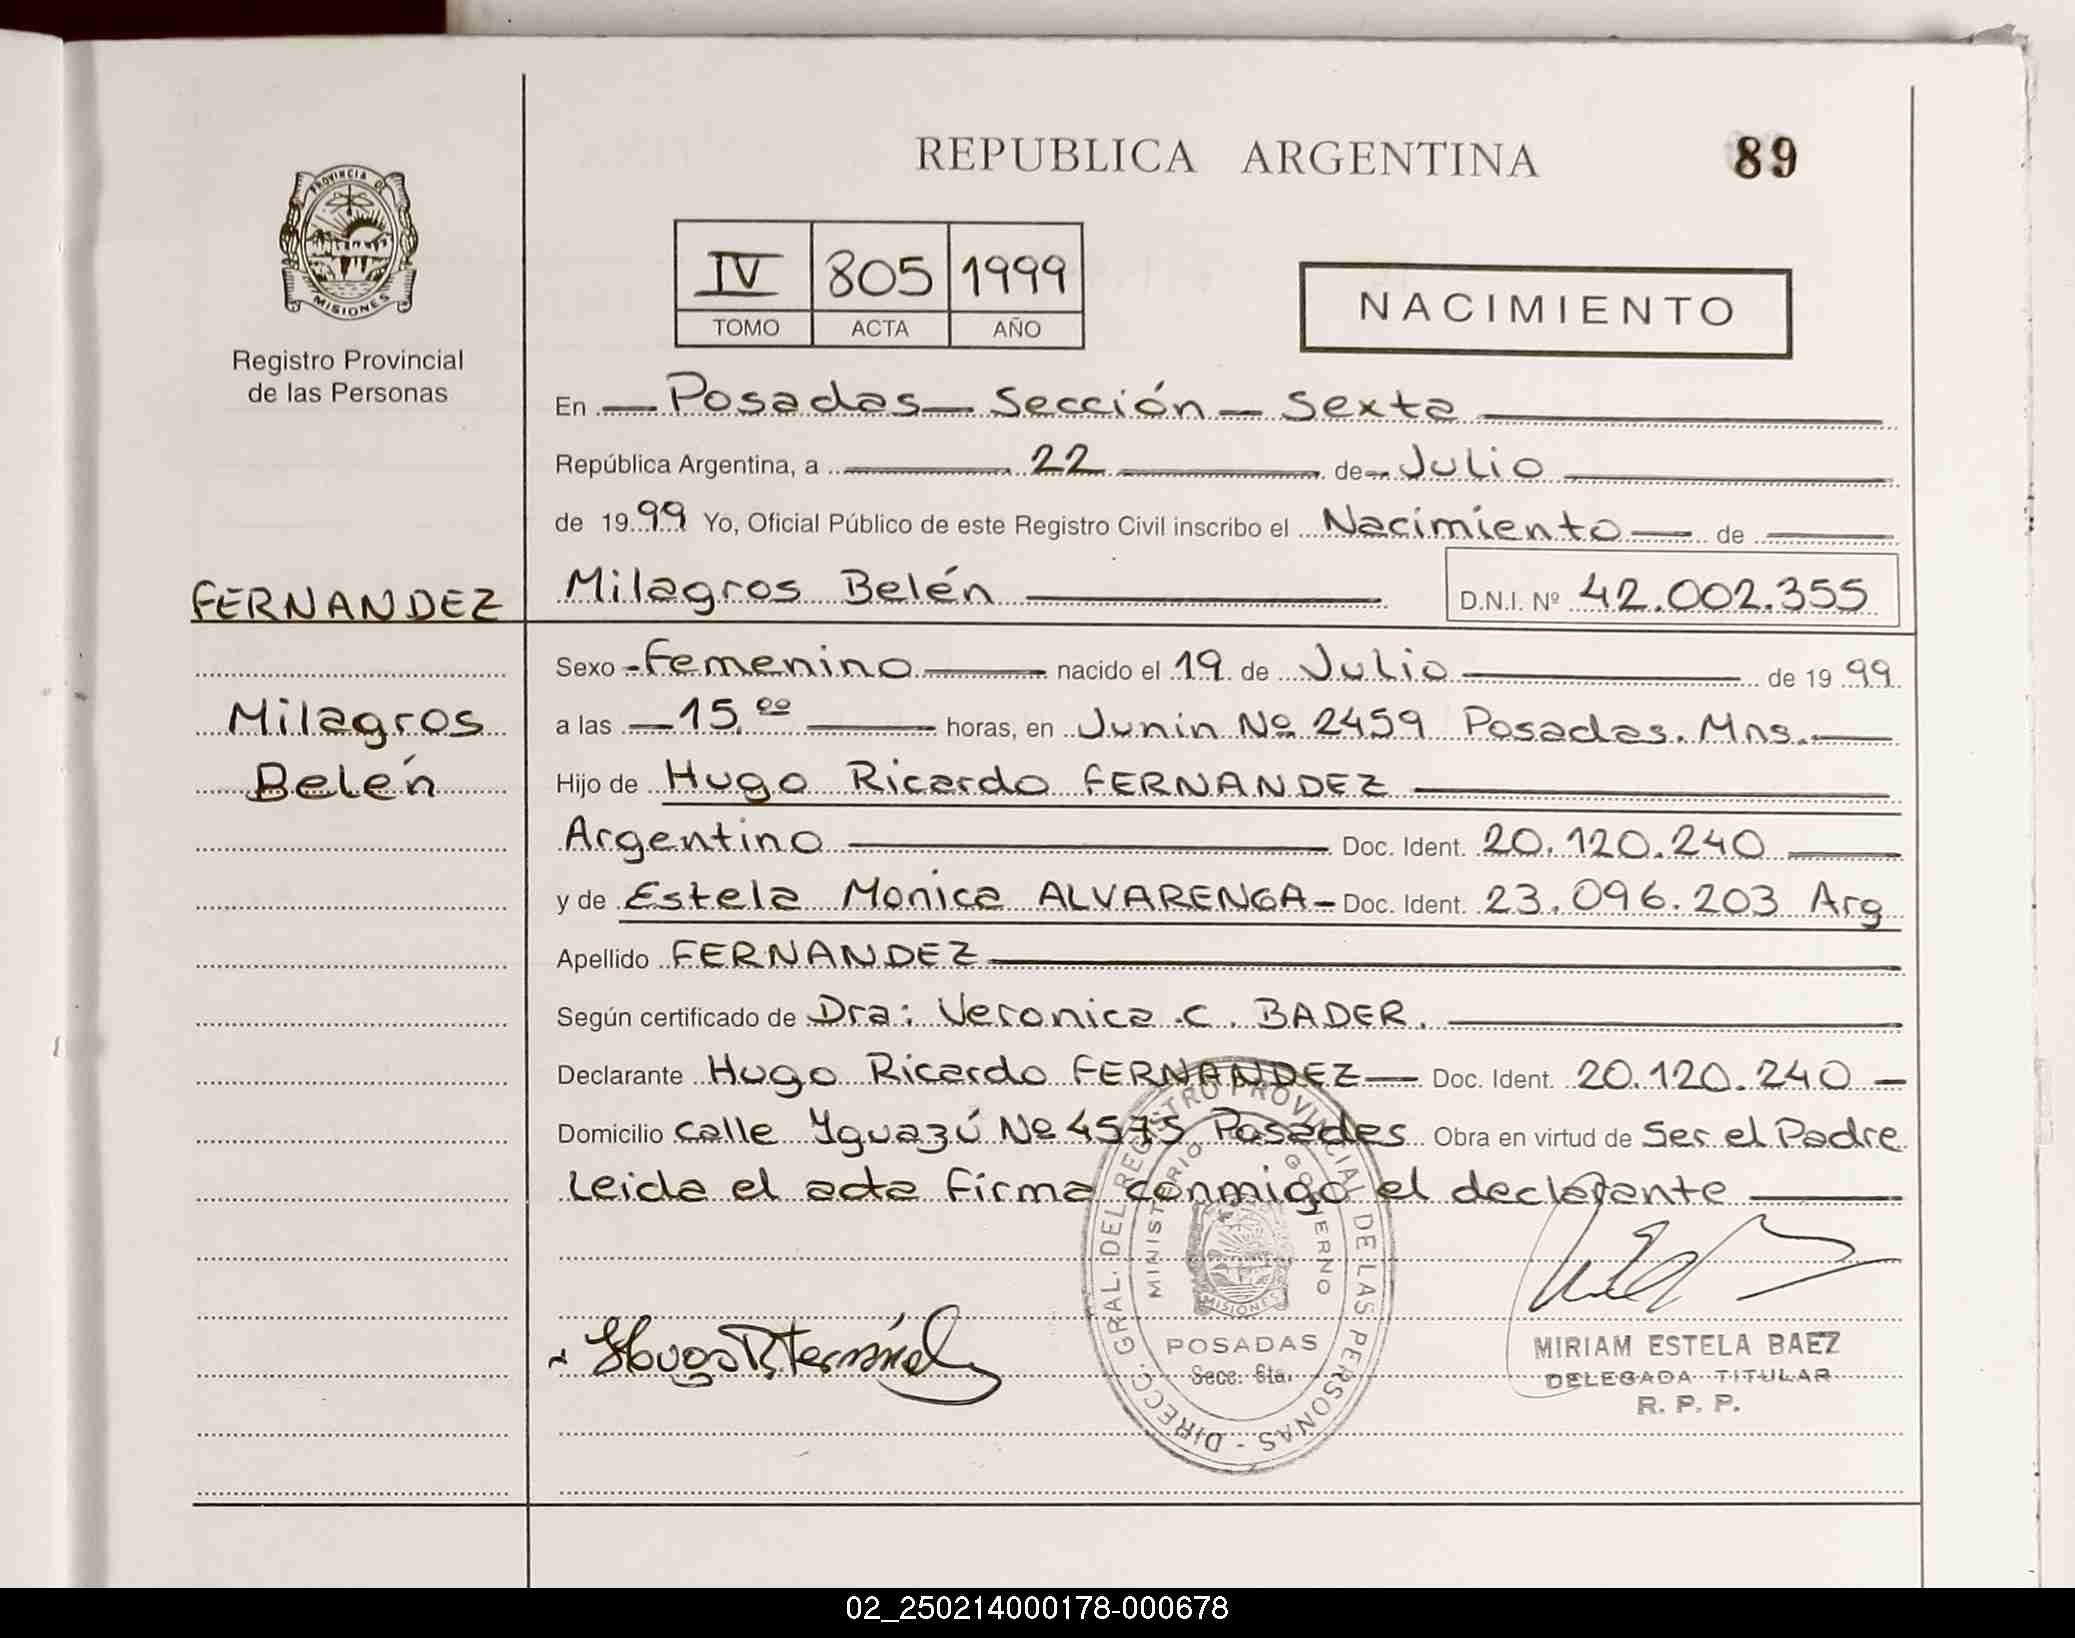 REPUBLICA ARGENTINA
89
PROVINCIA DE
MISIONES
Registro Provincial
de las Personas
IV 805 1999
TOMO ACTA AÑO
NACIMIENTO
En Posadas - Sección - Sexta
República Argentina, a 22 de Julio
de 1999 Yo, Oficial Público de este Registro Civil inscribo el Nacimiento de
FERNANDEZ
Milagros Belén D.N.I. Nº 42.002.355
Sexo - Femenino nacido el 19 de Julio de 1999
Milagros
a las 15,00 horas, en Junin Nº 2459 Posadas. Mns.
Belén
Hijo de Hugo Ricardo FERNANDEZ
Argentino Doc. Ident. 20.120.240
y de Estela Monica ALVARENGA - Doc. Ident. 23.096.203 Arg
Apellido FERNANDEZ
Según certificado de Dra: Veronica C. BADER.
Declarante Hugo Ricardo FERNANDEZ Doc. Ident. 20.120.240
Domicilio calle Yguazú Nº 4575 Posadas Obra en virtud de Ser el Padre
Leida el acta firma conmigo el declarante
DIRECC. GRAL. DEL REGISTRO PROVINCIAL DE LAS PERSONAS -
MINISTERIO GOBIERNO
MISIONES
POSADAS
Secc. 6ta.
Hugo R. Fernández
MIRIAM ESTELA BAEZ
DELEGADA TITULAR
R. P. P.
02_250214000178-000678